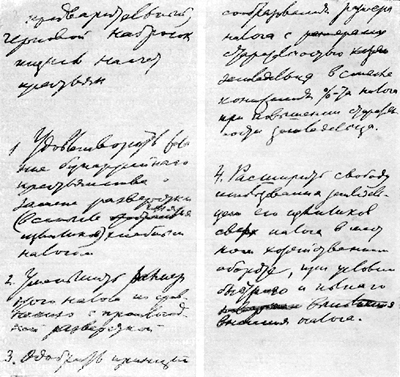 предварительный,
черновой набросок
тезисов насчет
крестьян
1. Удовлетворить жела-
ние беспартийного
крестьянства о
замене разверстки
(в смысле изъятия
излишков) хлебным
налогом.
2. Уменьшить размер
этого налога по срав-
нению с прошлогод-
ней разверсткой.
3. Одобрить принцип
сообразования размера
налога с
старательностью
земледельца в смысле
понижения %-та налога
при повышении старатель-
ности земледельца.
4. Расширить свободу
использования земледель-
цем его излишков
сверх налога в мест-
ном хозяйственном
обороте, при условии
быстрого и полного
внесения налога.